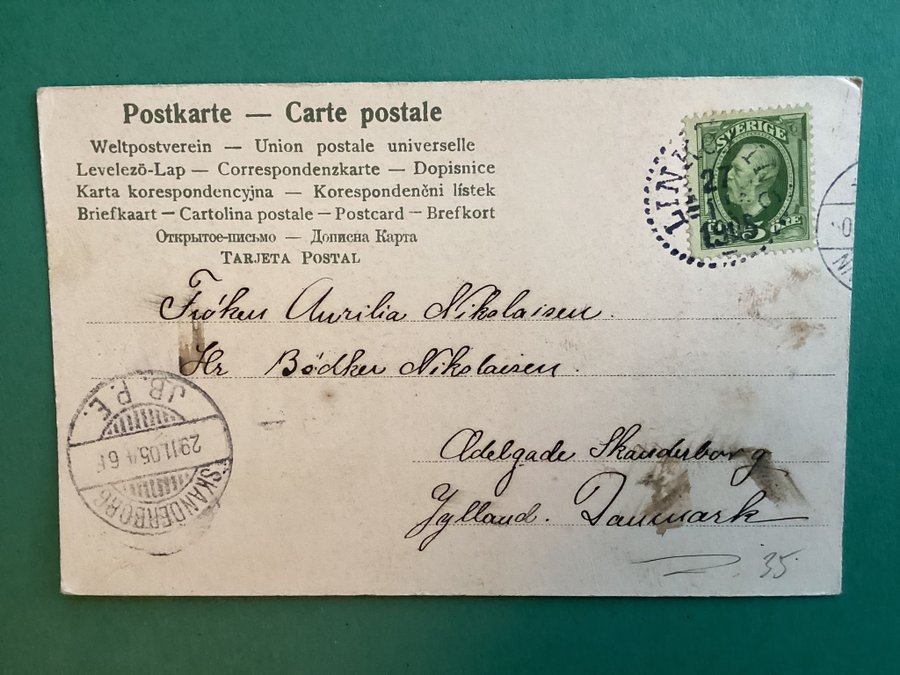 Postkarte — Carte postale
Weltpostverein — Union postale universelle
Levelező-Lap — Correspondenzkarte — Dopisnice
Karta korespondencyjna — Korespondenčni lístek
Briefkaart — Cartolina postale — Postcard — Brefkort
Открытое-письмо — Дописна Карта
TARJETA POSTAL
SVERIGE
5 ÖRE
LINK
27
11
1905
Frøken Aurilia Nikolaisen.
Hr Bødker Nikolaisen.
Adelgade Skanderborg
Jylland. Danmark
J.B.P.E.
29.11.05.4-6 E
SKANDERBORG
35